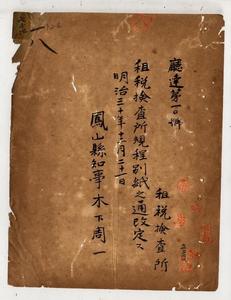 廳達第一〇號
租税檢查所
租税檢查所規程別紙之通改定ス
明治三十年十二月二十一日
鳳山縣知事木下周一